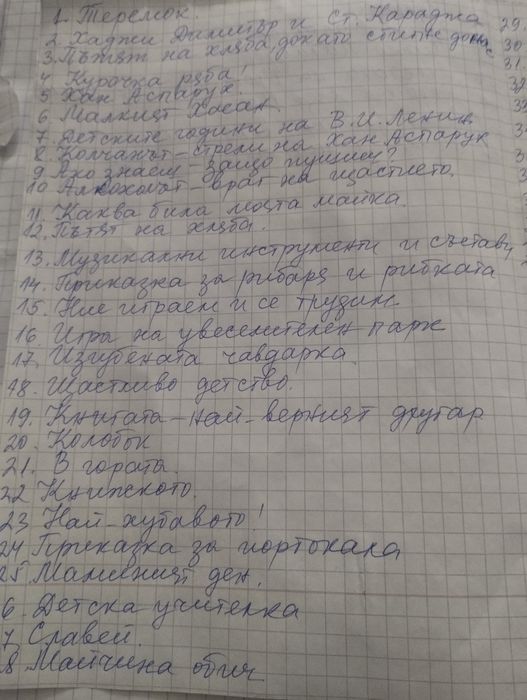 1. Теремок. 29.
2. Хаджи Димитър и Ст. Караджа 30
3. Пътят на хляба, докато стигне до нас 31.
4. Курочка ряба!
5. Хан Аспарух.
6. Малкият Хасан.
7. Детските години на В. И. Ленин
8. Колчанът - стрели на Хан Аспарух
9. Ако знаем - защо пушим?
10. Алкохолът - враг на щастието.
11. Каква била моята майка.
12. Пътят на хляба.
13. Музикални инструменти и съставу
14. Приказка за рибаря и рибката
15. Ние играем и се трудим.
16. Игра на увеселителен парк
17. Изгубената чавдарка.
18. Щастливо детство.
19. Книгата - най-верният другар
20. Колобок
21. В гората.
22 Книжското.
23 Най-хубавото!
24 Приказка за портокала
25. Маминият ден.
6. Детска учителка
7 Славей.
8. Майчина обич